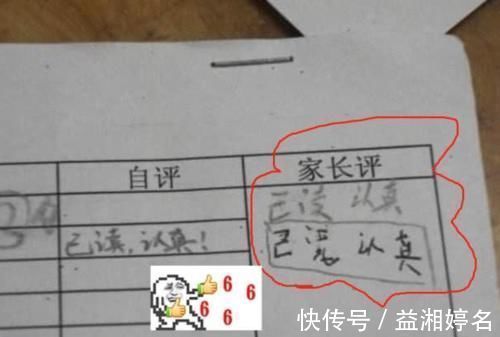 自评 家长评
已读 认真
已读,认真!
已 认真
6 6
6 6
快传号 / 益湘婷名